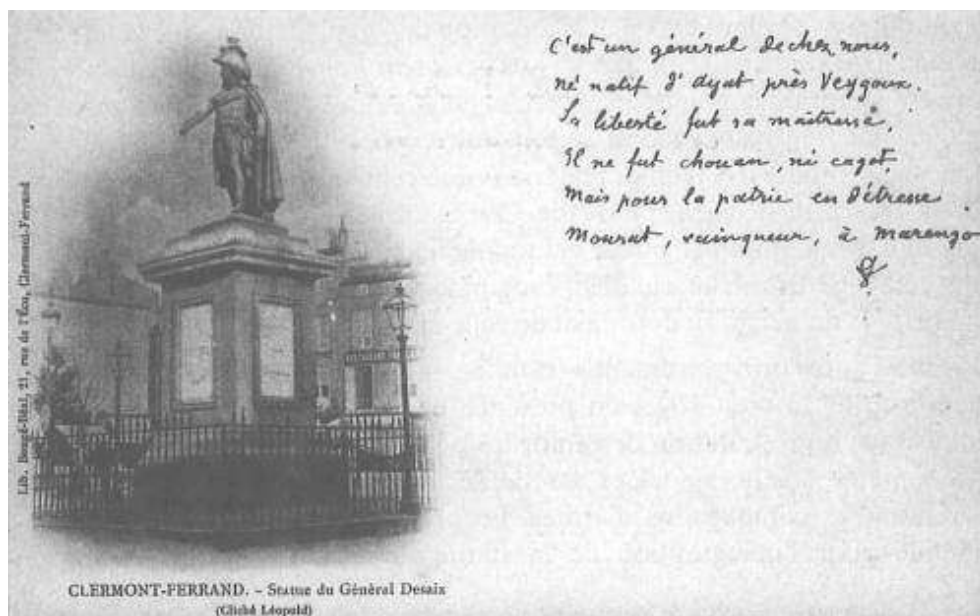 C'est un général de chez nous,
né natif d'Ayat près Veygoux.
La liberté fut sa maîtresse,
Il ne fut chouan, ni cagot,
Mais pour la patrie en détresse
Mourut, vainqueur, à Marengo.
Lib. Bougé-Béal, 21, rue de l'Écu, Clermont-Ferrand
CLERMONT-FERRAND. - Statue du Général Desaix
(Cliché Léopold)